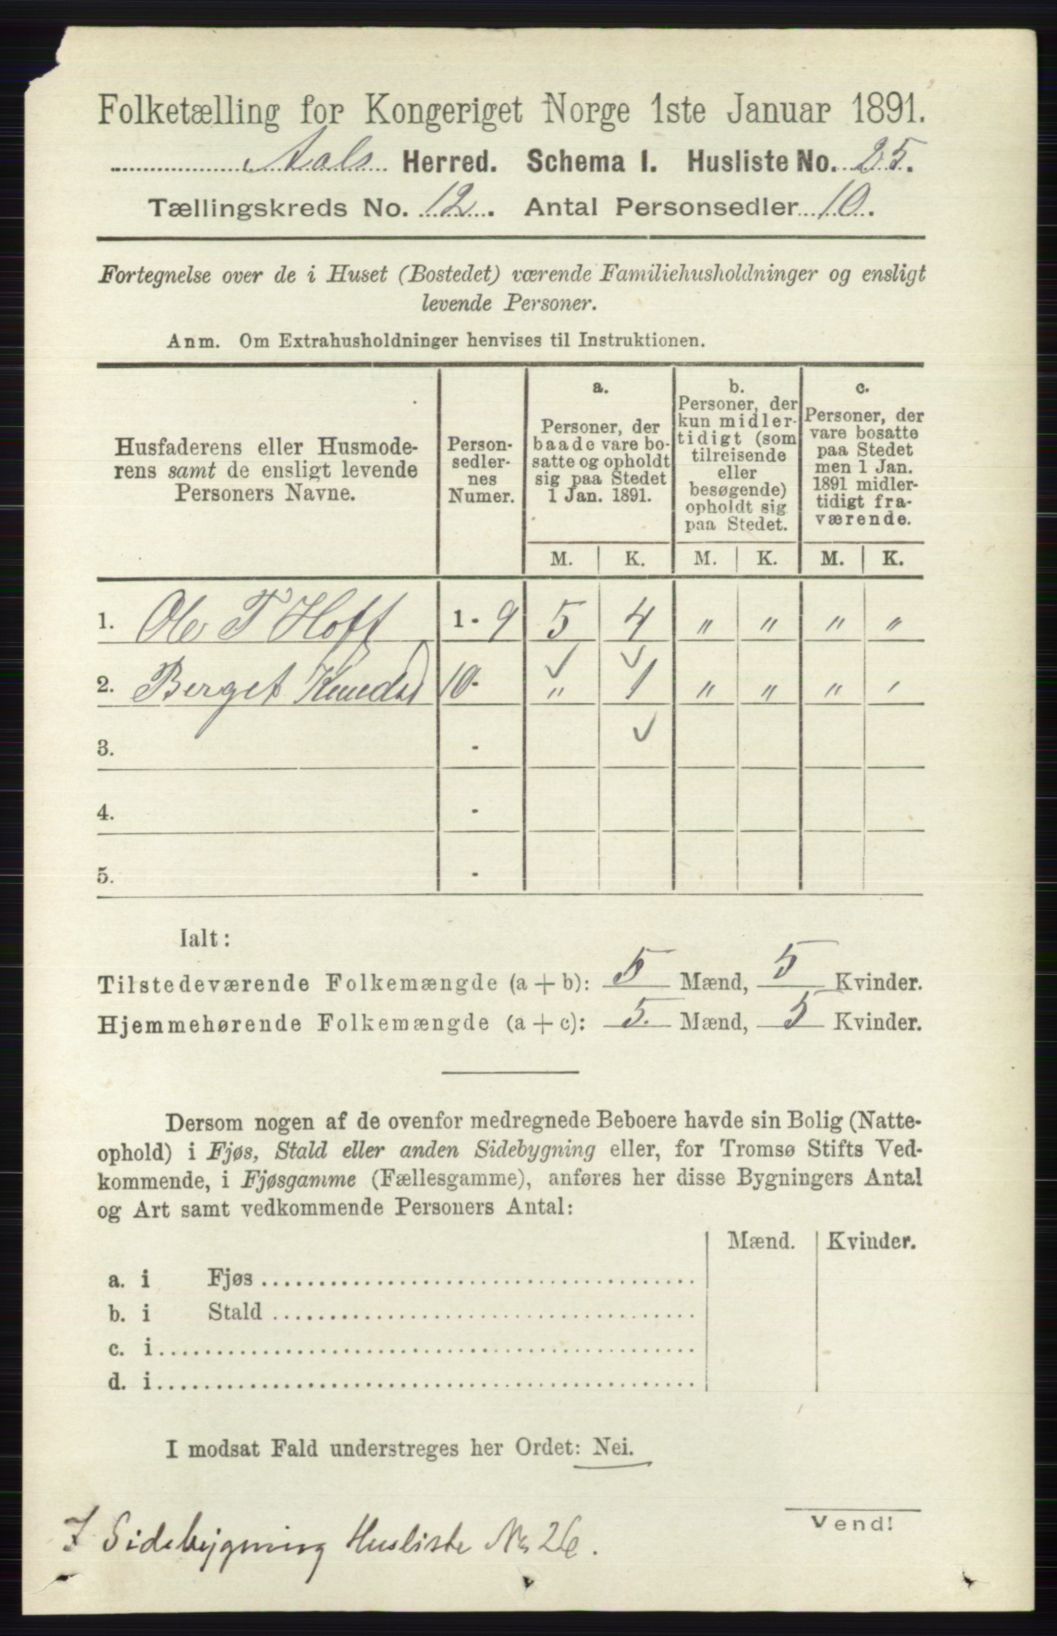 Folketælling for Kongeriget Norge 1ste Januar 1891.
Aals Herred. Schema I. Husliste No. 25.
Tællingskreds No. 12. Antal Personsedler 10.
Fortegnelse over de i Huset (Bostedet) værende Familiehusholdninger og ensligt
levende Personer.
Anm. Om Extrahusholdninger henvises til Instruktionen.
Husfaderens eller Husmode-
rens samt de ensligt levende
Personers Navne.
Person-
sedler-
nes
Numer.
a.
Personer, der
baade vare bo-
satte og opholdt
sig paa Stedet
1 Jan. 1891.
b.
Personer, der
kun midler-
tidigt (som
tilreisende
eller
besøgende)
opholdt sig
paa Stedet.
c.
Personer, der
vare bosatte
paa Stedet
men 1 Jan.
1891 midler-
tidigt fra-
værende.
M. K. M. K. M. K.
1. Ole T Hoff 1 - 9 5 4 " " " "
2. Berget Knudsd 10 - " 1 " " " "
3. -
4. -
5. -
Ialt:
Tilstedeværende Folkemængde (a + b): 5 Mænd, 5 Kvinder.
Hjemmehørende Folkemængde (a + c): 5. Mænd, 5 Kvinder.
Dersom nogen af de ovenfor medregnede Beboere havde sin Bolig (Natte-
ophold) i Fjøs, Stald eller anden Sidebygning eller, for Tromsø Stifts Ved-
kommende, i Fjøsgamme (Fællesgamme), anføres her disse Bygningers Antal
og Art samt vedkommende Personers Antal:
Mænd. Kvinder.
a. i Fjøs
b. i Stald
c. i
d. i
I modsat Fald understreges her Ordet: Nei.
Vend!
I Sidebygning Husliste No 26.